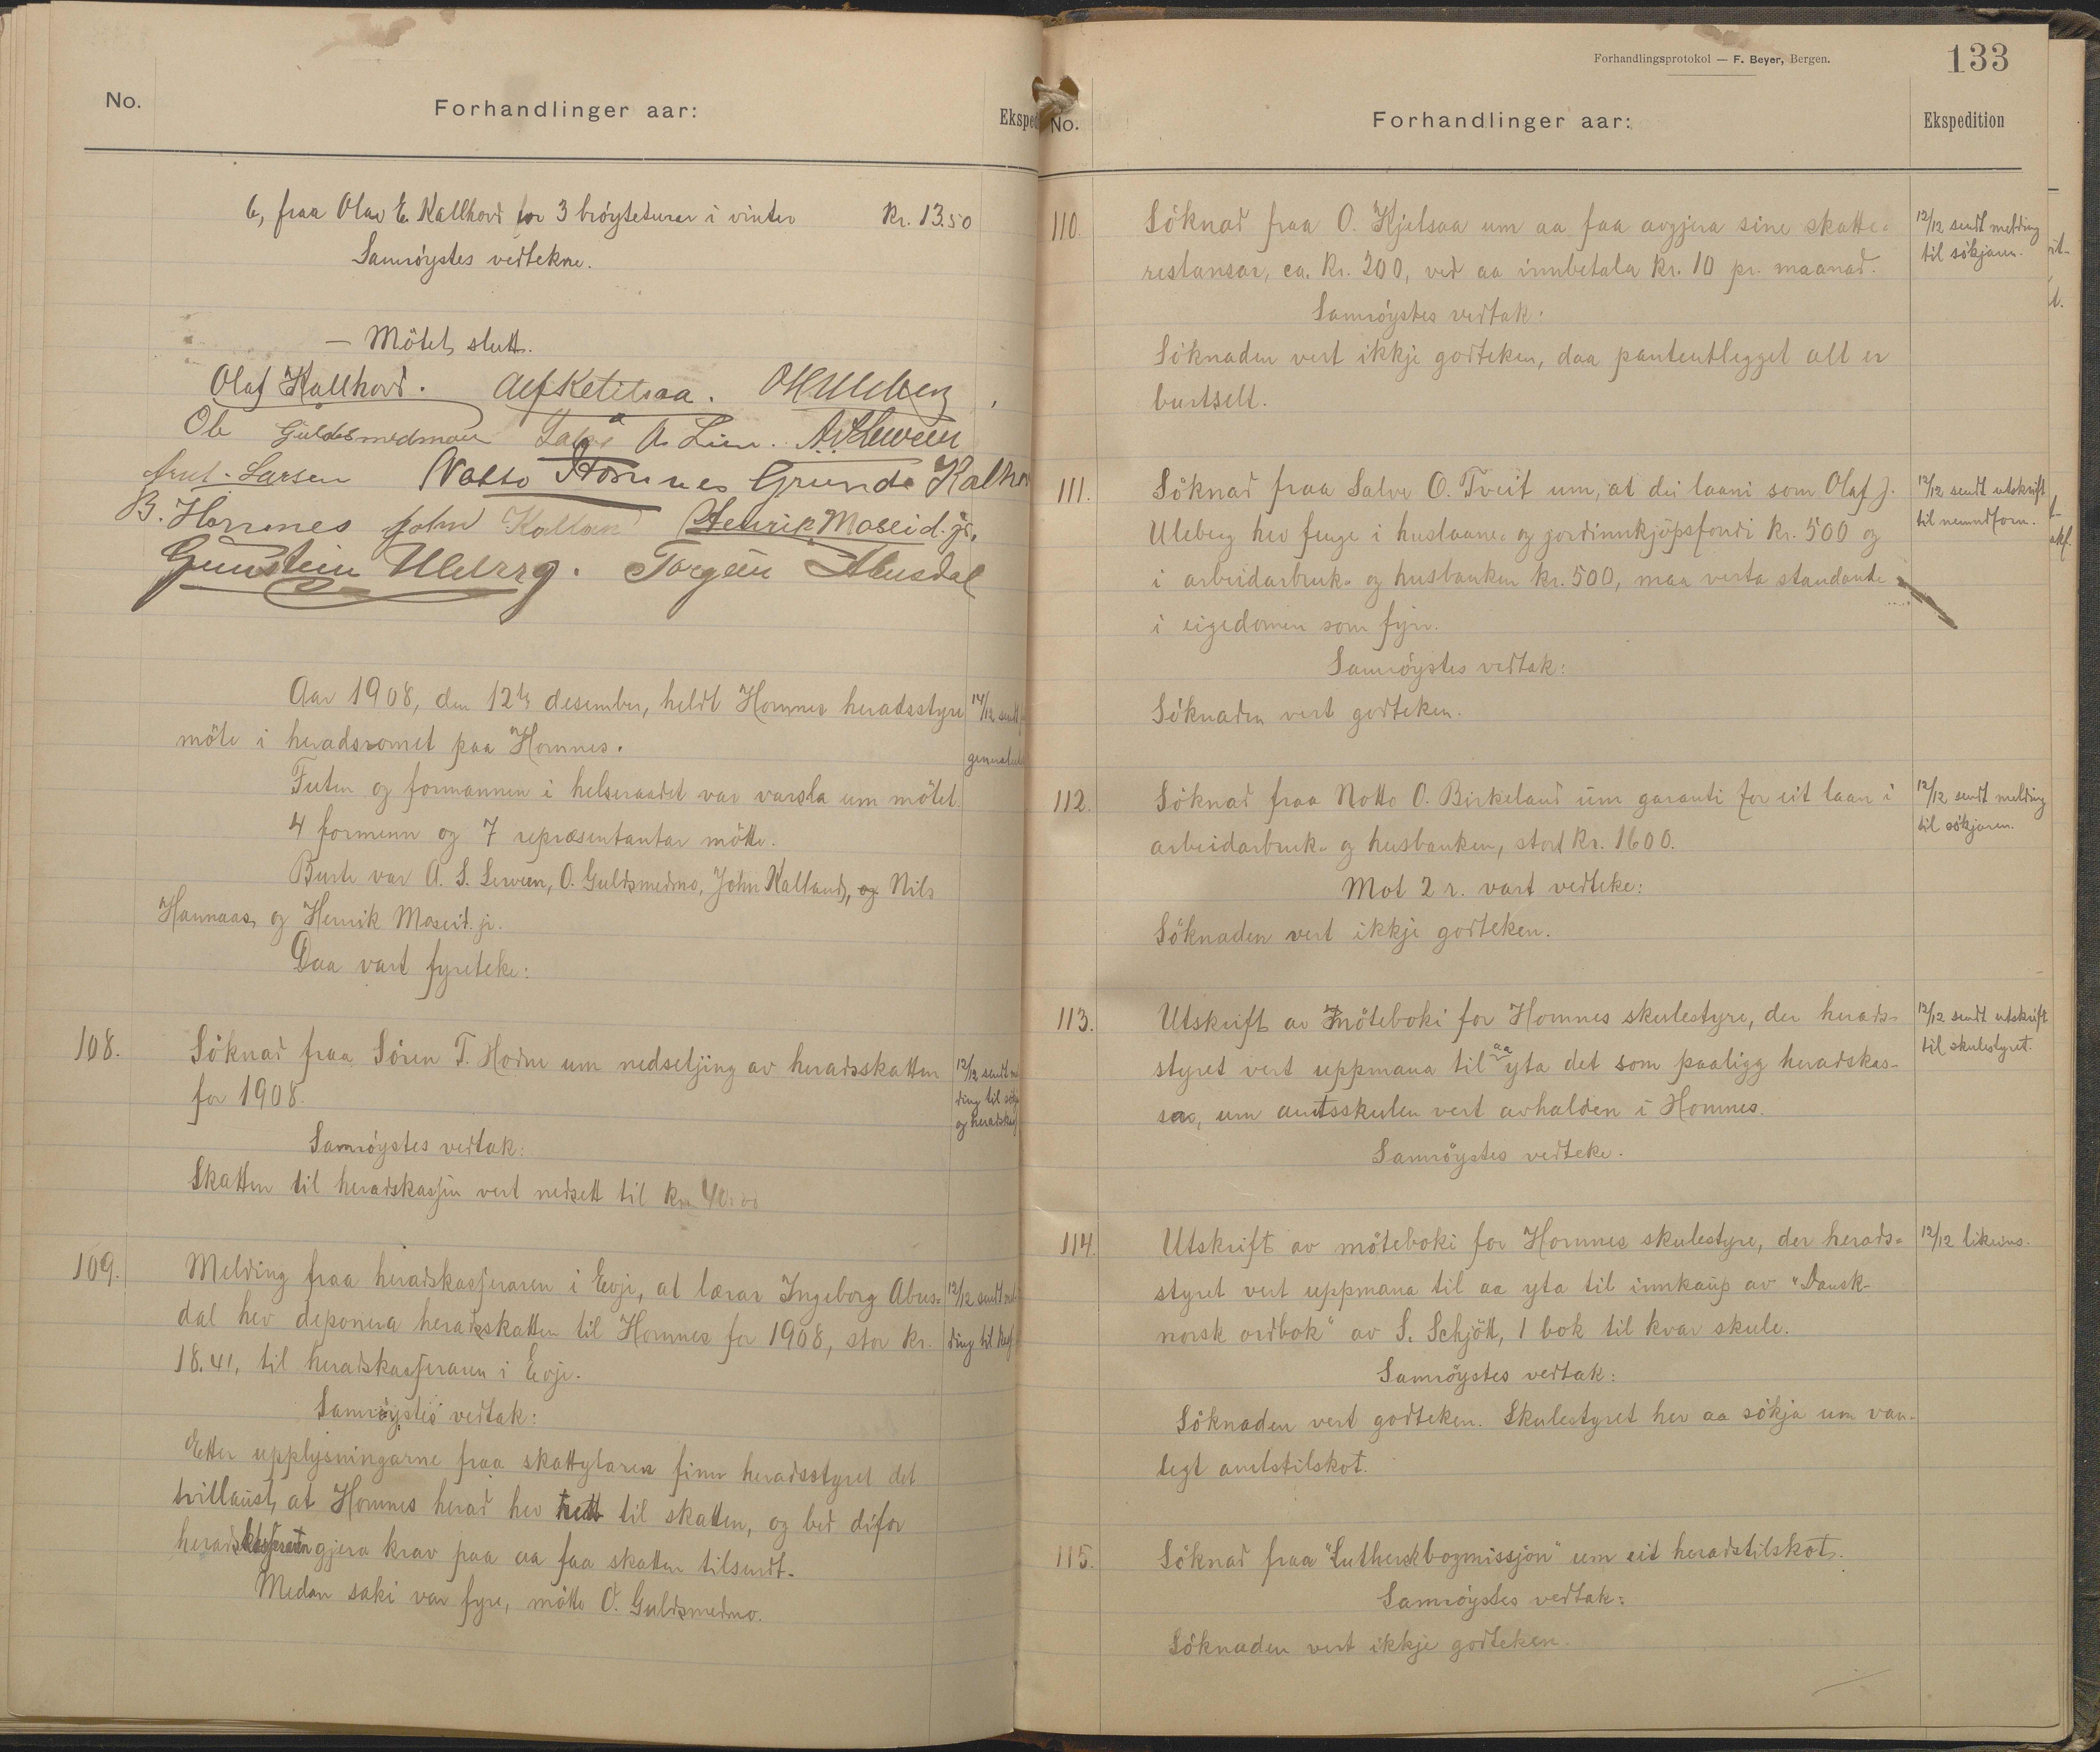 No.
Forhandlinger aar:
6, fraa Olav E. Kallhovd for 3 bröyteturer i vinter Kr. 13.50
Samröystes vedtekne.
— Mötet slutt.
Olaf Kallhovd. Alf Ketilsaa.
Ole Guldsmedmoen A. Lien.
Larsen Notto Hornnes Grunde Kalhov
B. Hornnes John Kallan Henrik Moseid. jr.
Gunstein Uleberg. Torgeir Abusdal
Aar 1908, den 12te desember, heldt Hornnes heradsstyre
möte i heradsromet paa Hornnes.
14/12 sendt
Futen og formannen i helseraadet var varsla um mötet.
4 formenn og 7 repræsentantar mötte.
Burte var A. S. Lerveen, O. Guldsmedmo, John Kalland, og Nils
Hannaas, og Henrik Moseid. jr.
Daa vart fyreteke:
108.
Söknad fraa Sören T. Hodne um nedsetjing av heradsskatten
for 1908.
12/12 sendt mel
ding til sökja
og heradskas
Samröystes vedtak:
Skatten til heradskassen vert nedsett til kr. 40.00
109.
Melding fraa heradskasseraren i Evje, at lærar Ingeborg Abus-
dal hev deponera heradsskatten til Hornnes for 1908, stor kr.
18.41, til heradskasseraren i Evje.
12/12 sendt mel
ding til kas
Samröystes vedtak:
Etter upplysningarne fraa skattytaren finn heradsstyret det
tvillaust, at Hornnes herad hev rett til skatten, og bed difor
heradskasseraren gjera krav paa aa faa skatten tilsendt.
Medan saki var fyre, mötte O. Guldsmedmo.
Forhandlingsprotokol — F. Beyer, Bergen.
133
No.
Forhandlinger aar:
Ekspedition
110.
Söknad fraa O. Kjetsaa um aa faa avgjera sine skatte-
restansar, ca. Kr. 200, ved aa innbetala Kr. 10 pr. maanad.
12/12 sendt melding
til sökjaren.
Samröystes vedtak:
Söknaden vert ikkje godteken, daa panteutlegget alt er
burtselt.
111.
Söknad fraa Salve O. Tveit um, at dei laani som Olaf J.
Uleberg hev fenge i huslaane- og jordinnkjöpsfondi kr. 500 og
i arbeidarbruk- og husbanken kr. 500, maa verta standande
i eigedomen som fyrr.
12/12 sendt utskrift
til nemndform.
Samröystes vedtak:
Söknaden vert godteken.
112.
Söknad fraa Notto O. Birkeland um garanti for eit laan i
arbeidarbruk- og husbanken, stort Kr. 1600.
12/12 sendt melding
til sökjaren.
Mot 2 r. vart vedteke:
Söknaden vert ikkje godteken.
113.
Utskrift av möteboki for Hornnes skulestyre, der herads-
styret vert uppmana til aa yta det som paaligg heradskas-
sa, um amtsskulen vert avhalden i Hornnes.
12/12 sendt utskrift
til skulestyret.
Samröystes vedteke.
114.
Utskrift av möteboki for Hornnes skulestyre, der herads-
styret vert uppmana til aa yta til innkaup av "Dansk-
norsk ordbok" av S. Schjött, 1 bok til kvar skule.
12/12 likeins.
Samröystes vedtak:
Söknaden vert godteken. Skulestyret hev aa sökja um van-
legt amtstilskot.
115.
Söknad fraa "Luthersk bogmissjon" um eit heradstilskot.
Samröystes vedtak:
Söknaden vert ikkje godteken.